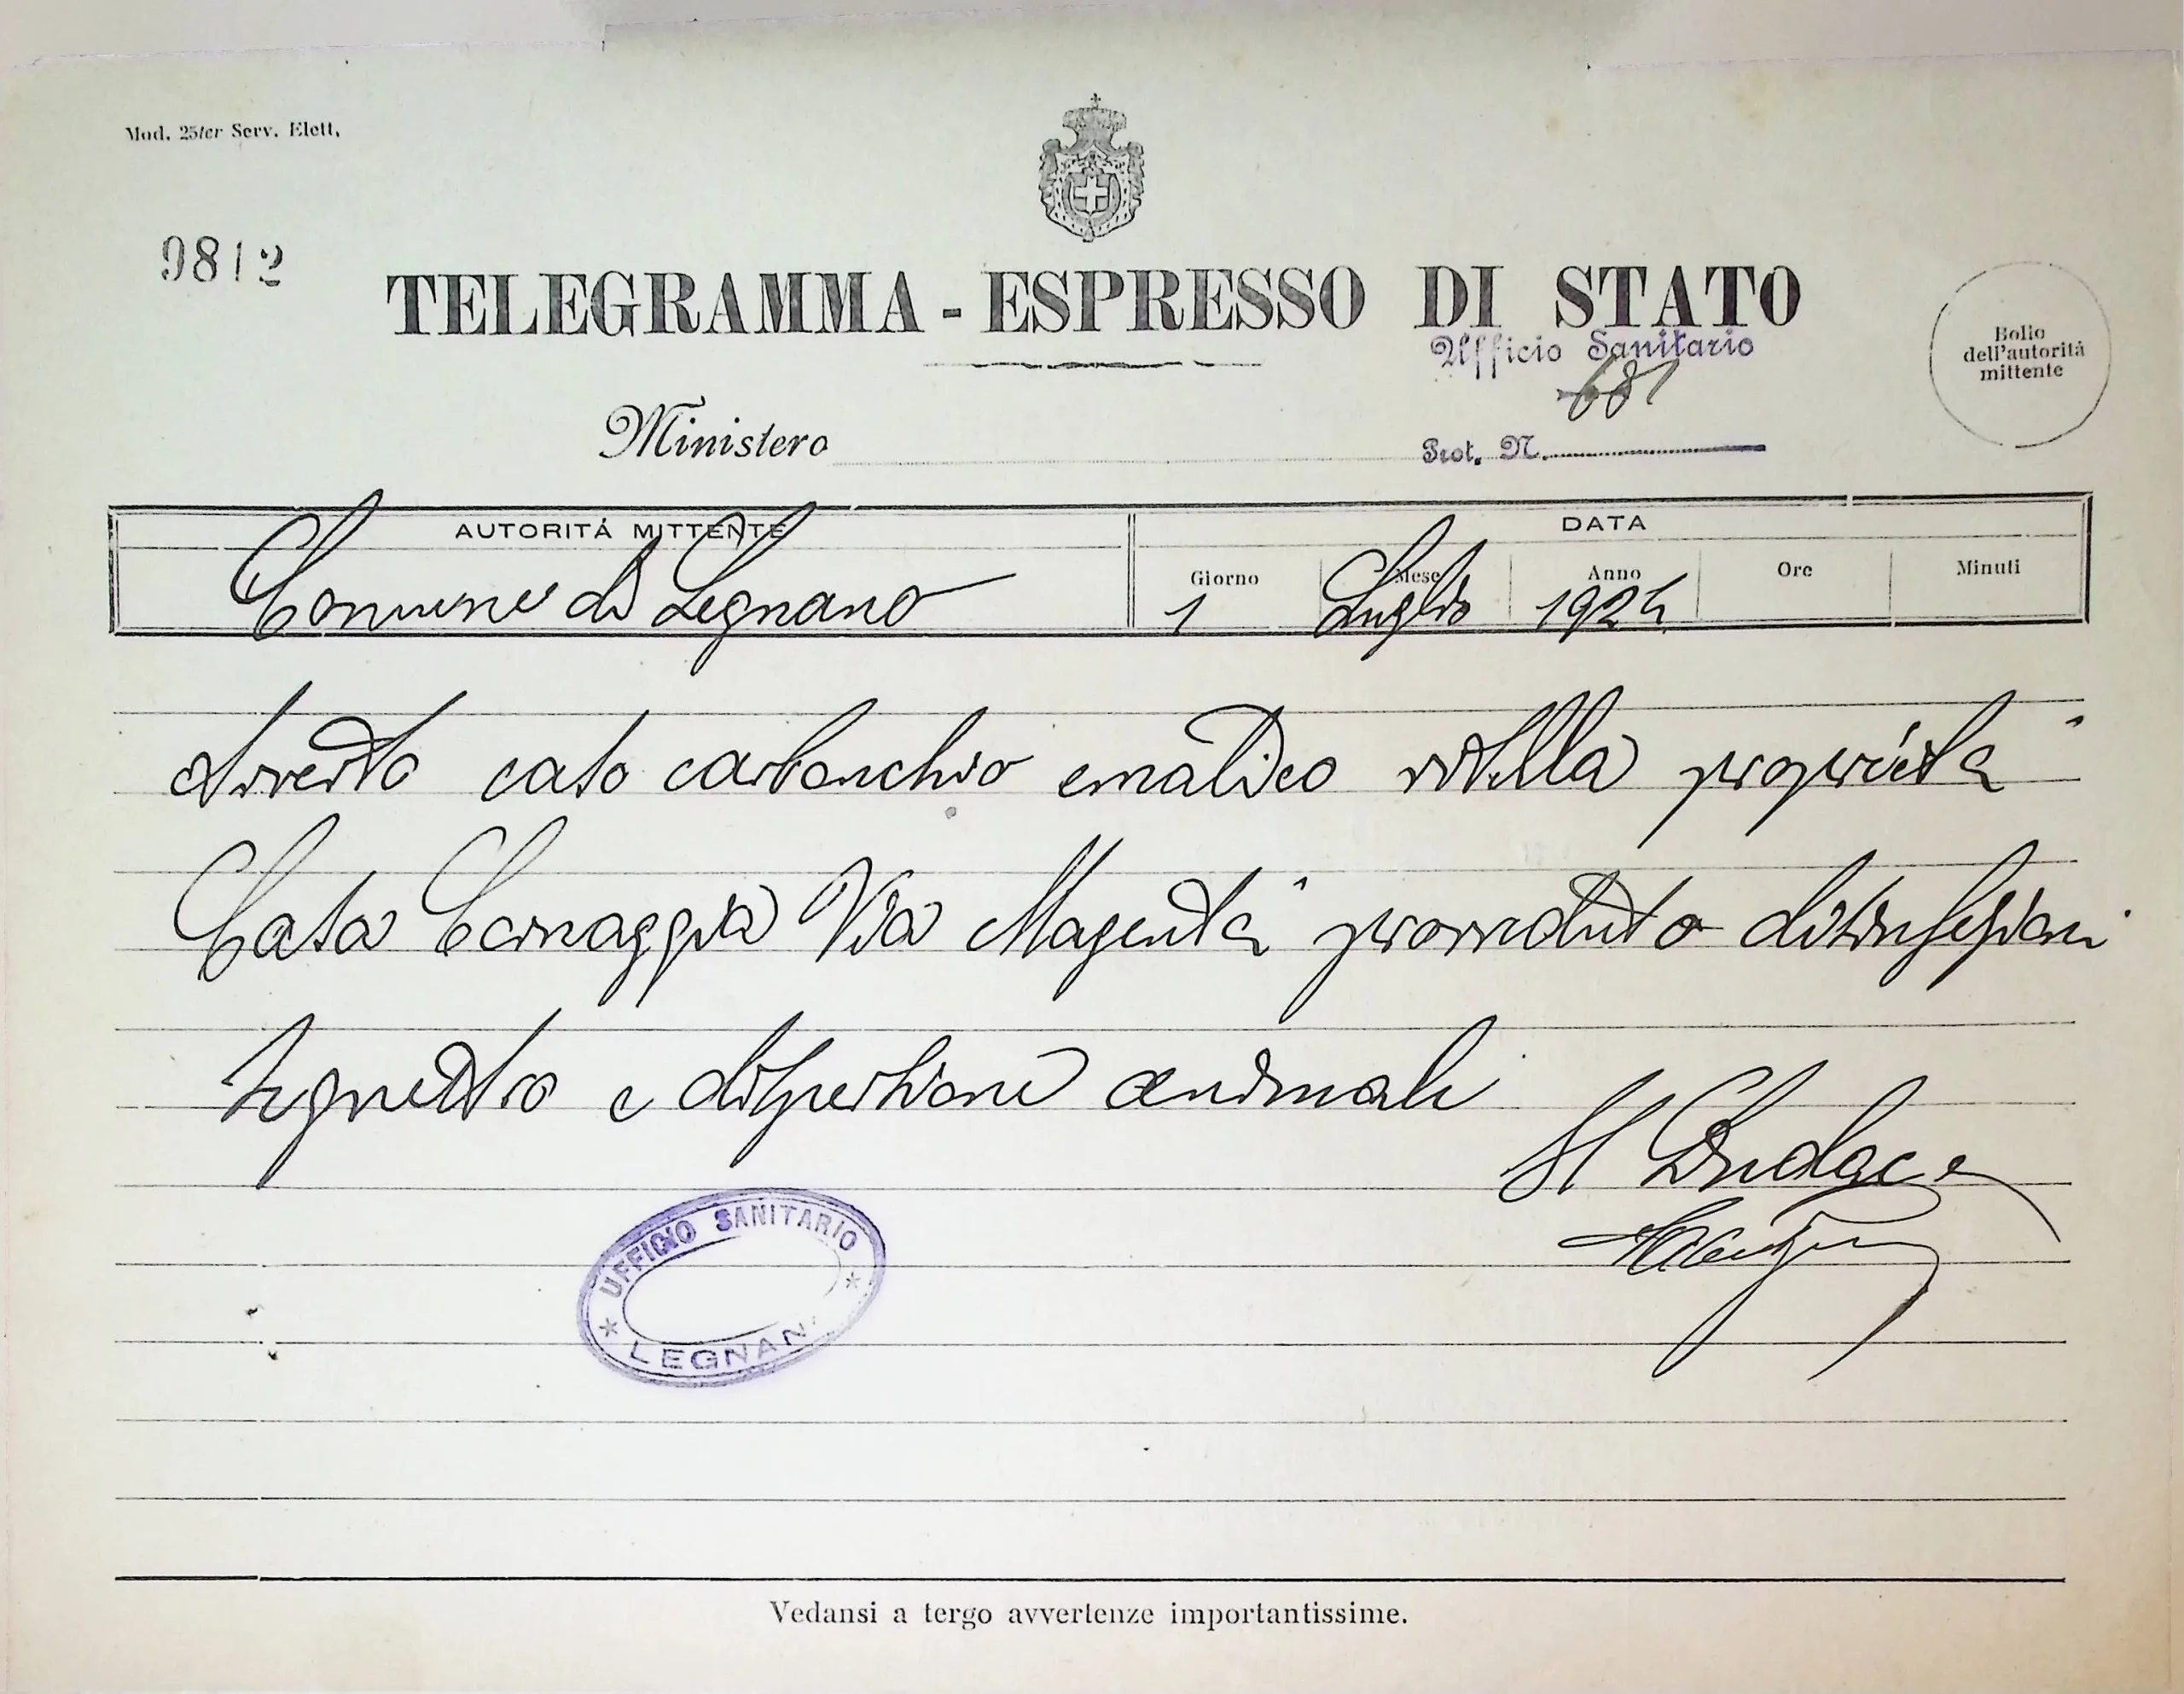 Mod. 25ter Serv. Elett.
9812
TELEGRAMMA - ESPRESSO DI STATO
Ufficio Sanitario
681
Bollo
dell'autorità
mittente
Ministero
Prot. N.
AUTORITÁ MITTENTE
DATA
Giorno Mese Anno Ore Minuti
Comune di Legnano 1 Luglio 1924
caso carbonchio ematico vitella proprietà
Casa Cornaggia Via Magenta provveduto disinfezioni
sequestro e dispersione animali
Il Sindaco
UFFICIO SANITARIO
LEGNANO
Vedansi a tergo avvertenze importantissime.